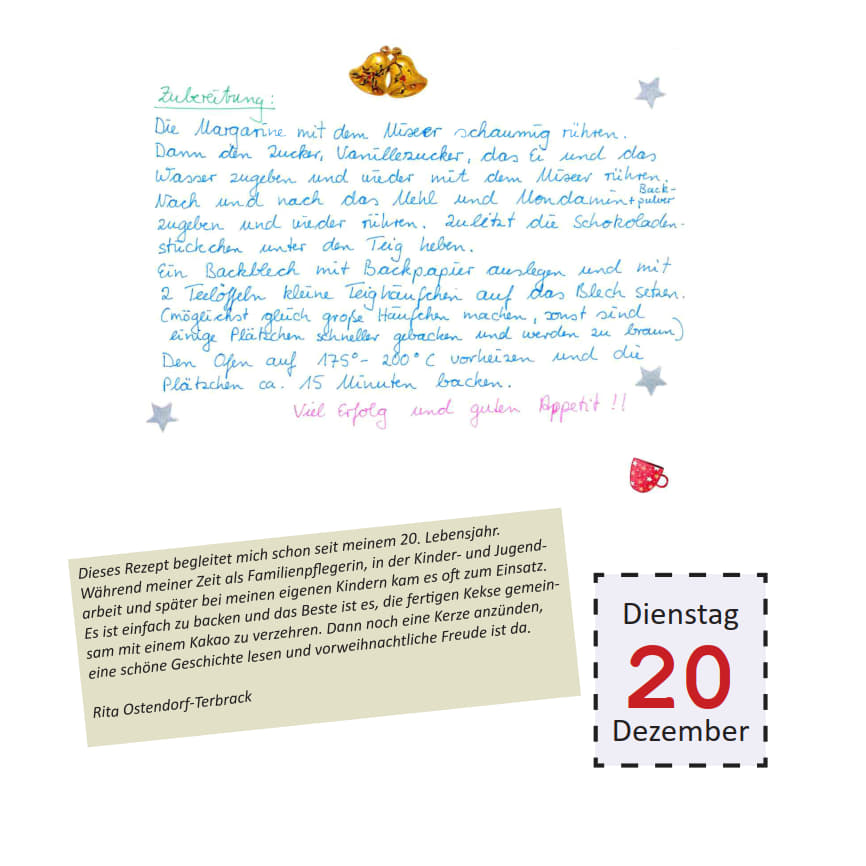 Zubereitung:
Die Margarine mit dem Mixer schaumig rühren.
Dann den Zucker, Vanillezucker, das Ei und das
Wasser zugeben und wieder mit dem Mixer rühren.
Nach und nach das Mehl und Mondamin + Back-
pulver
zugeben und wieder rühren. Zuletzt die Schokoladen-
stückchen unter den Teig heben.
Ein Backblech mit Backpapier auslegen und mit
2 Teelöffeln kleine Teighäufchen auf das Blech setzen.
(möglichst gleich große Häufchen machen, sonst sind
einige Plätzchen schneller gebacken und werden zu braun)
Den Ofen auf 175° - 200° C vorheizen und die
Plätzchen ca. 15 Minuten backen.
Viel Erfolg und guten Appetit !!
Dieses Rezept begleitet mich schon seit meinem 20. Lebensjahr.
Während meiner Zeit als Familienpflegerin, in der Kinder- und Jugend-
arbeit und später bei meinen eigenen Kindern kam es oft zum Einsatz.
Es ist einfach zu backen und das Beste ist es, die fertigen Kekse gemein-
sam mit einem Kakao zu verzehren. Dann noch eine Kerze anzünden,
eine schöne Geschichte lesen und vorweihnachtliche Freude ist da.
Rita Ostendorf-Terbrack
Dienstag
20
Dezember